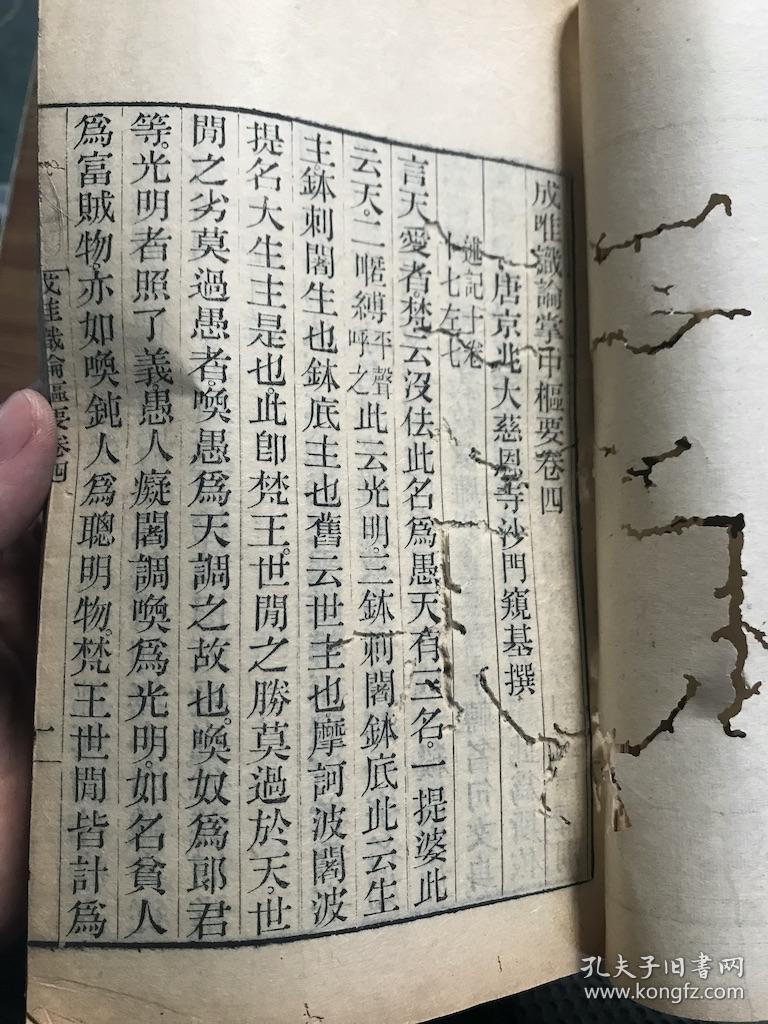 成唯識論掌中樞要卷四
唐京兆大慈恩寺沙門窺基撰
述記十卷
十七左七
言天愛者。梵云沒佉此名爲愚。天有三名。一提婆此
云天。二暱縛平聲呼之此云光明。三鉢刺闍鉢底此云生
主。鉢刺闍生也鉢底主也舊云世主也摩訶波闍波
提名大生主是也。此卽梵王。世閒之勝莫過於天。世
閒之劣莫過愚者。喚愚爲天調之故也。喚奴爲郎君
等。光明者照了義。愚人癡闇調喚爲光明。如名貧人
爲富賊物。亦如喚鈍人爲聰明物。梵王世閒皆計爲
成唯識論樞要卷四
一
孔夫子旧书网
www.kongfz.com